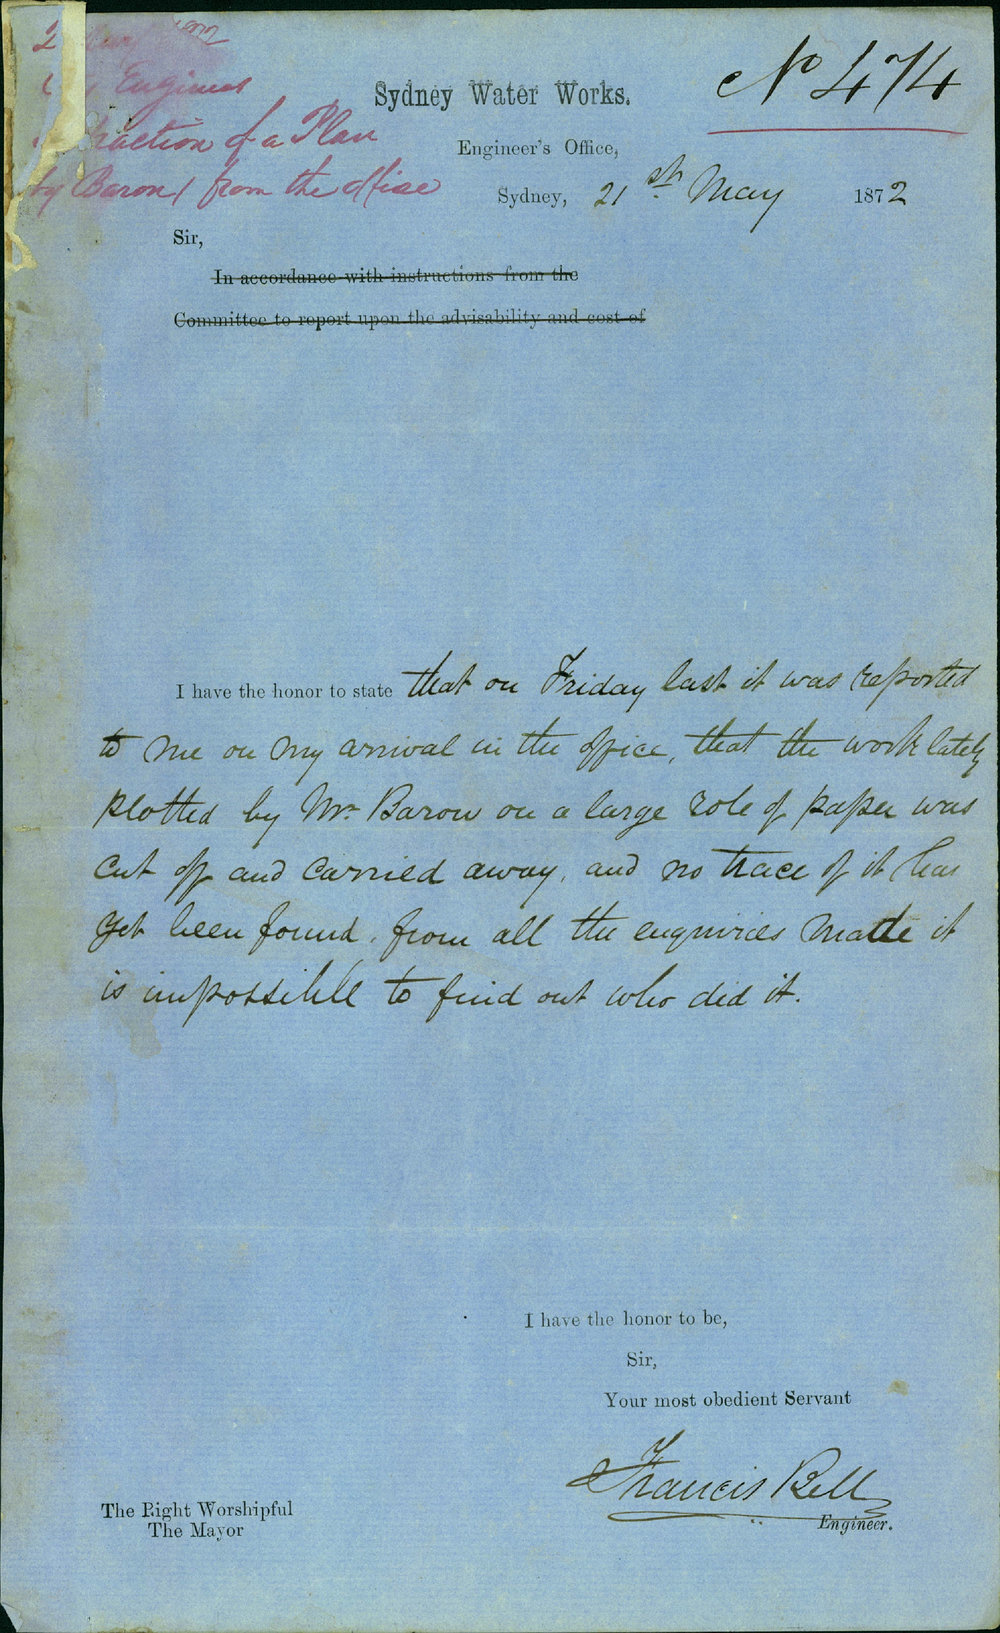 2
Engineer
of a Plan
by Baron/ from the office
No 474
Sydney Water Works.
Engineer's Office,
Sydney, 21st May 1872
Sir,
In accordance with instructions from the
Committee to report upon the advisability and cost of
I have the honor to state that on Friday last it was reported
to me on my arrival in the office, that the work lately
plotted by Mr Baron on a large role of paper was
cut off and carried away, and no trace of it has
yet been found. from all the enquiries made it
is impossible to find out who did it.
I have the honor to be,
Sir,
Your most obedient Servant
Francis Bell
Engineer.
The Right Worshipful
The Mayor